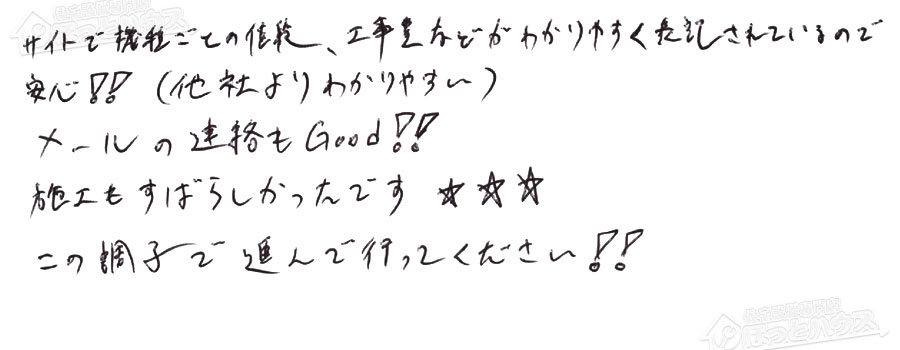 サイトで機種ごとの値段、工事費などがわかりやすく表記されているので
安心!! (他社よりわかりやすい)
メールの連絡もGood!!
施工もすばらしかったです ☆☆☆
この調子で進んで行ってください!!
ほっとハウス